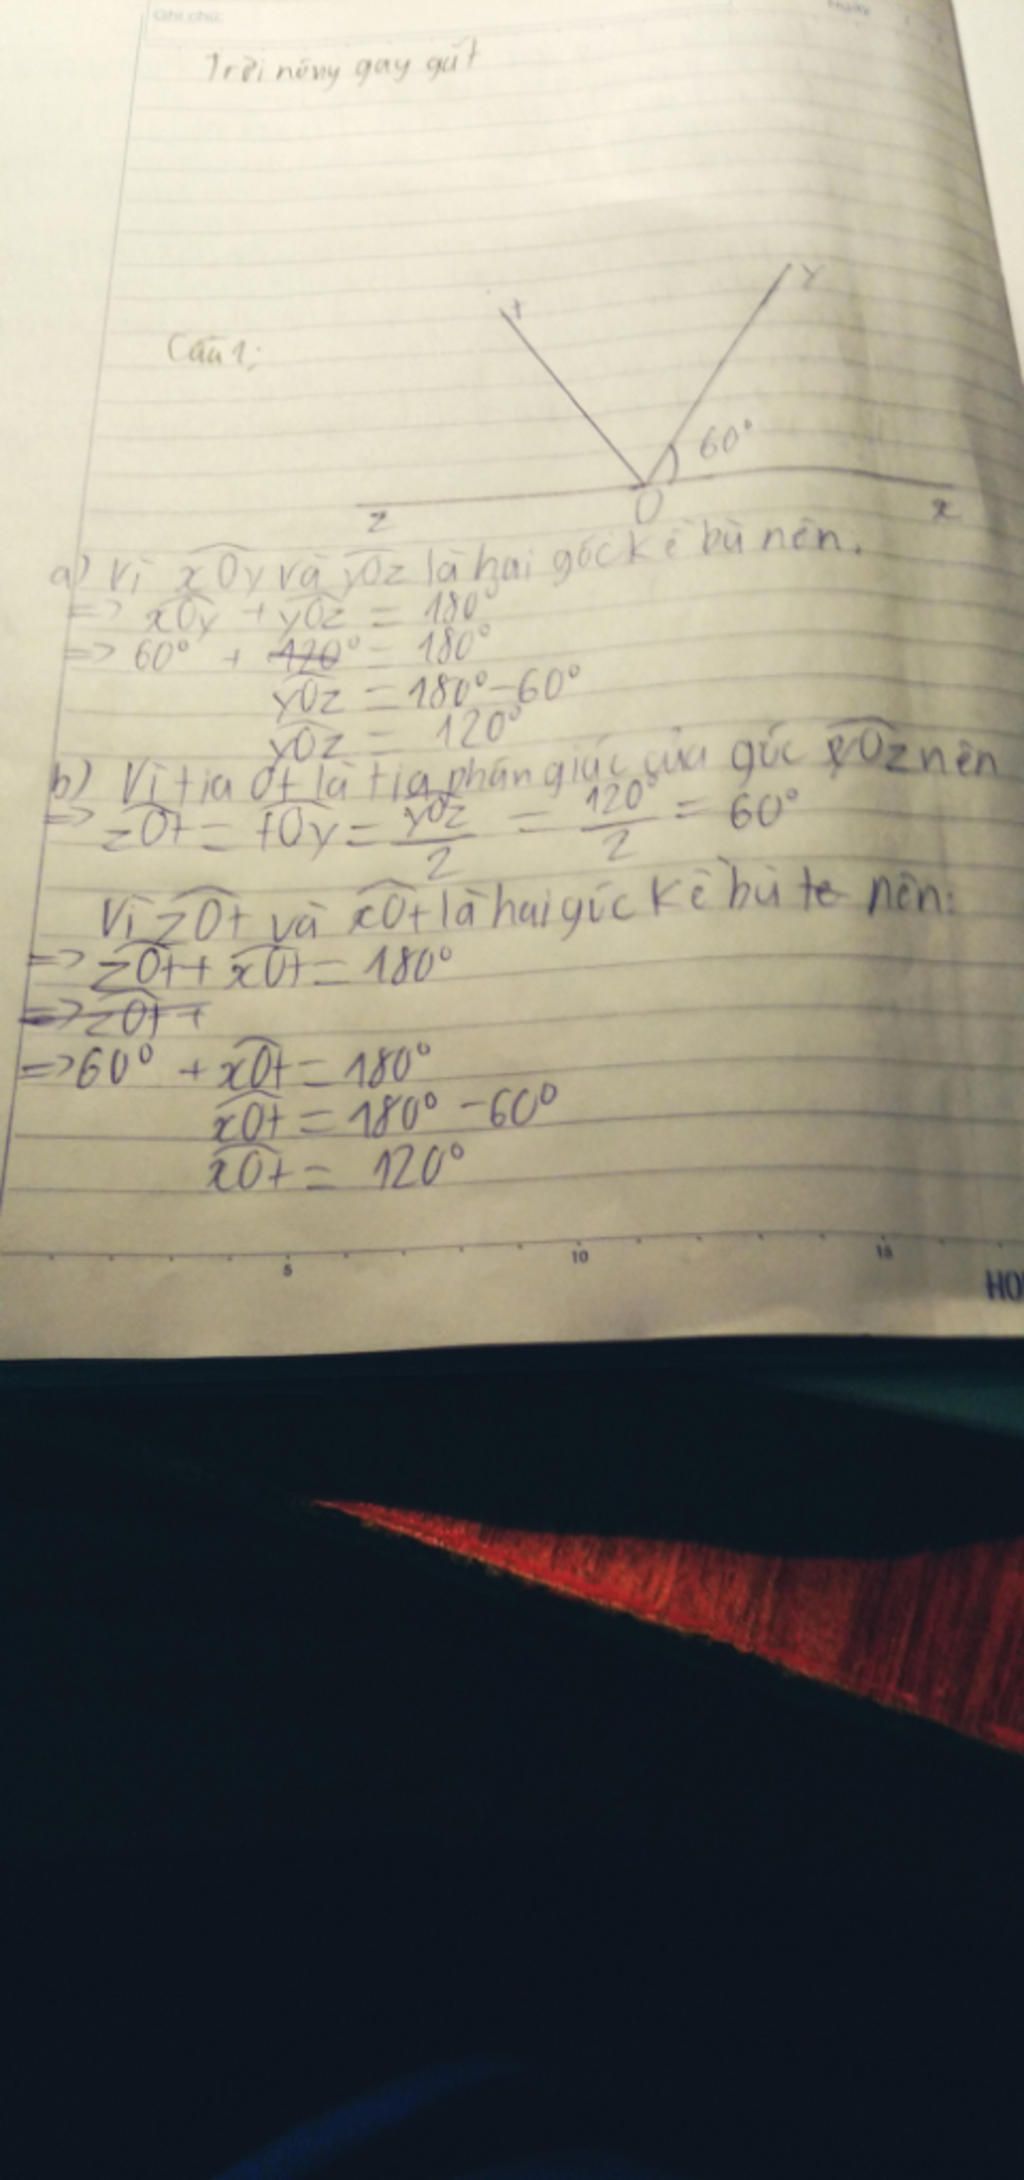 Ghi chú:
Trời nóng gay gắt
t
y
Câu 1:
60°
z
O
x
a) Vì xOy và yOz là hai góc kề bù nên.
=> xOy + yOz = 180°
=> 60° + 120° = 180°
yOz = 180° - 60°
yOz = 120°
b) Vì tia Ot là tia phân giác của góc yOz nên
=> zOt = tOy = yOz/2 = 120°/2 = 60°
Vì zOt và xOt là hai góc kề bù nên:
=> zOt + xOt = 180°
=> zOt +
=> 60° + xOt = 180°
xOt = 180° - 60°
xOt = 120°
5 10 15
HO